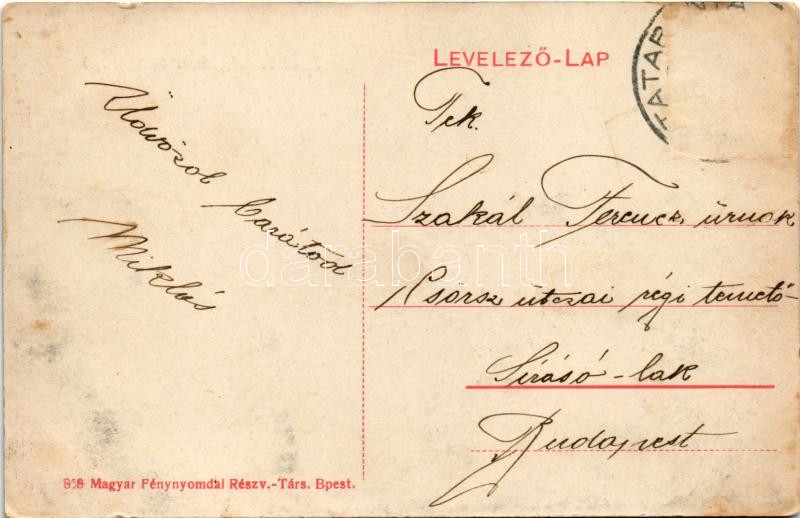 LEVELEZŐ-LAP
KATAR
Tek.
Szakál Ferencz úrnok
Csörsz útczai régi temető-
Sírásó-lak
Budapest
Üdvözöl
barátod
Miklós
darabanth
858 Magyar Fénynyomdai Részv.-Társ. Bpest.